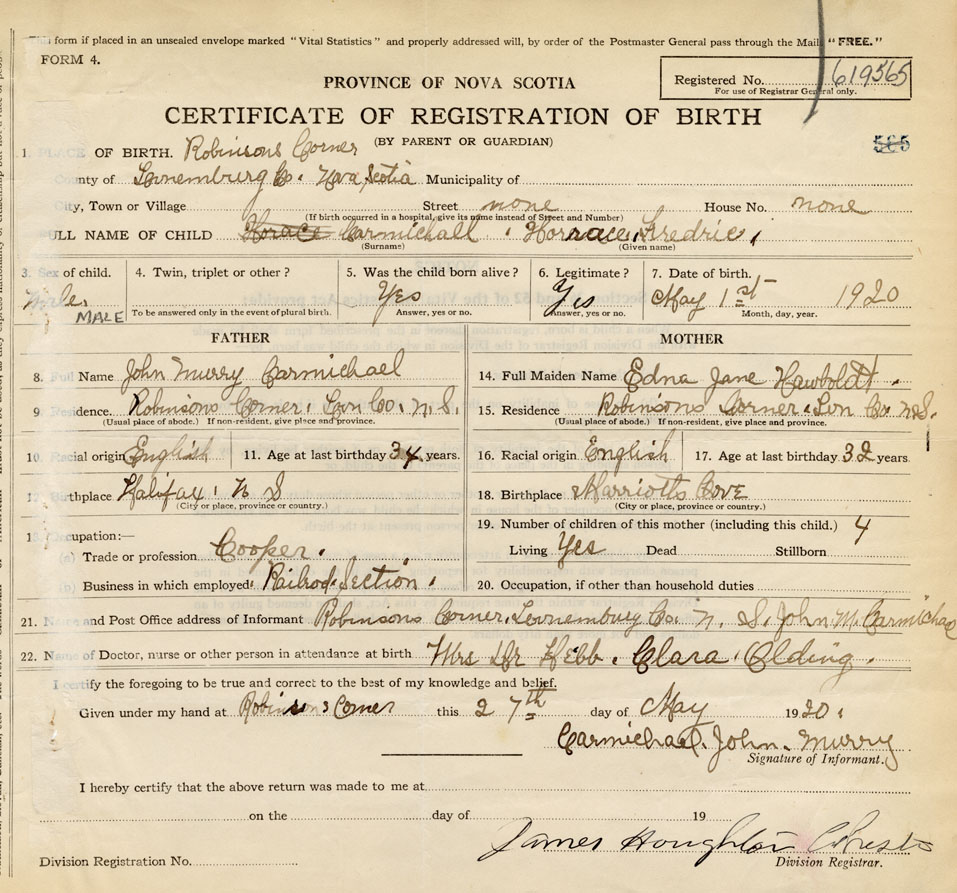 This form if placed in an unsealed envelope marked "Vital Statistics" and properly addressed will, by order of the Postmaster General pass through the Mail "FREE."
FORM 4.
Registered No. 619565
For use of Registrar General only.
PROVINCE OF NOVA SCOTIA
CERTIFICATE OF REGISTRATION OF BIRTH
(BY PARENT OR GUARDIAN)
565
1. PLACE OF BIRTH. Robinsons Corner
County of Lunemburg Co. Nova Scotia Municipality of
City, Town or Village Street none House No. none
(If birth occurred in a hospital, give its name instead of Street and Number)
FULL NAME OF CHILD Horace Carmichall . Horrace, Fredric,
(Surname) (Given name)
3. Sex of child. 4. Twin, triplet or other? 5. Was the child born alive? 6. Legitimate? 7. Date of birth.
Male. Yes Yes May 1st 1920
MALE To be answered only in the event of plural birth. Answer, yes or no. Answer, yes or no. Month, day, year.
FATHER
8. Full Name John Murry Carmichael
9. Residence. Robinsons Corner. Lun Co. N. S.
(Usual place of abode.) If non-resident, give place and province.
10. Racial origin English 11. Age at last birthday 34 years.
Birthplace Halifax. N S
(City or place, province or country.)
Occupation:—
(a) Trade or profession Cooper.
(b) Business in which employed Railrod. Section.
MOTHER
14. Full Maiden Name Edna Jane Hawboldt.
15. Residence Robinsons Corner. Lun Co. N S.
(Usual place of abode.) If non-resident, give place and province.
16. Racial origin English 17. Age at last birthday 32 years.
18. Birthplace Marriotts Cove
(City or place, province or country.)
19. Number of children of this mother (including this child.) 4
Living Yes Dead Stillborn
20. Occupation, if other than household duties
21. Name and Post Office address of Informant Robinsons Corner. Lunemburg Co. N. S. John M. Carmichael
22. Name of Doctor, nurse or other person in attendance at birth Mrs Dr Hebb. Clara. Olding.
I certify the foregoing to be true and correct to the best of my knowledge and belief.
Given under my hand at Robinsons Corner this 27th day of May 1920.
Carmichael. John. Murry
Signature of Informant.
I hereby certify that the above return was made to me at
on the day of 19
James Houghton Chester
Division Registration No. Division Registrar.